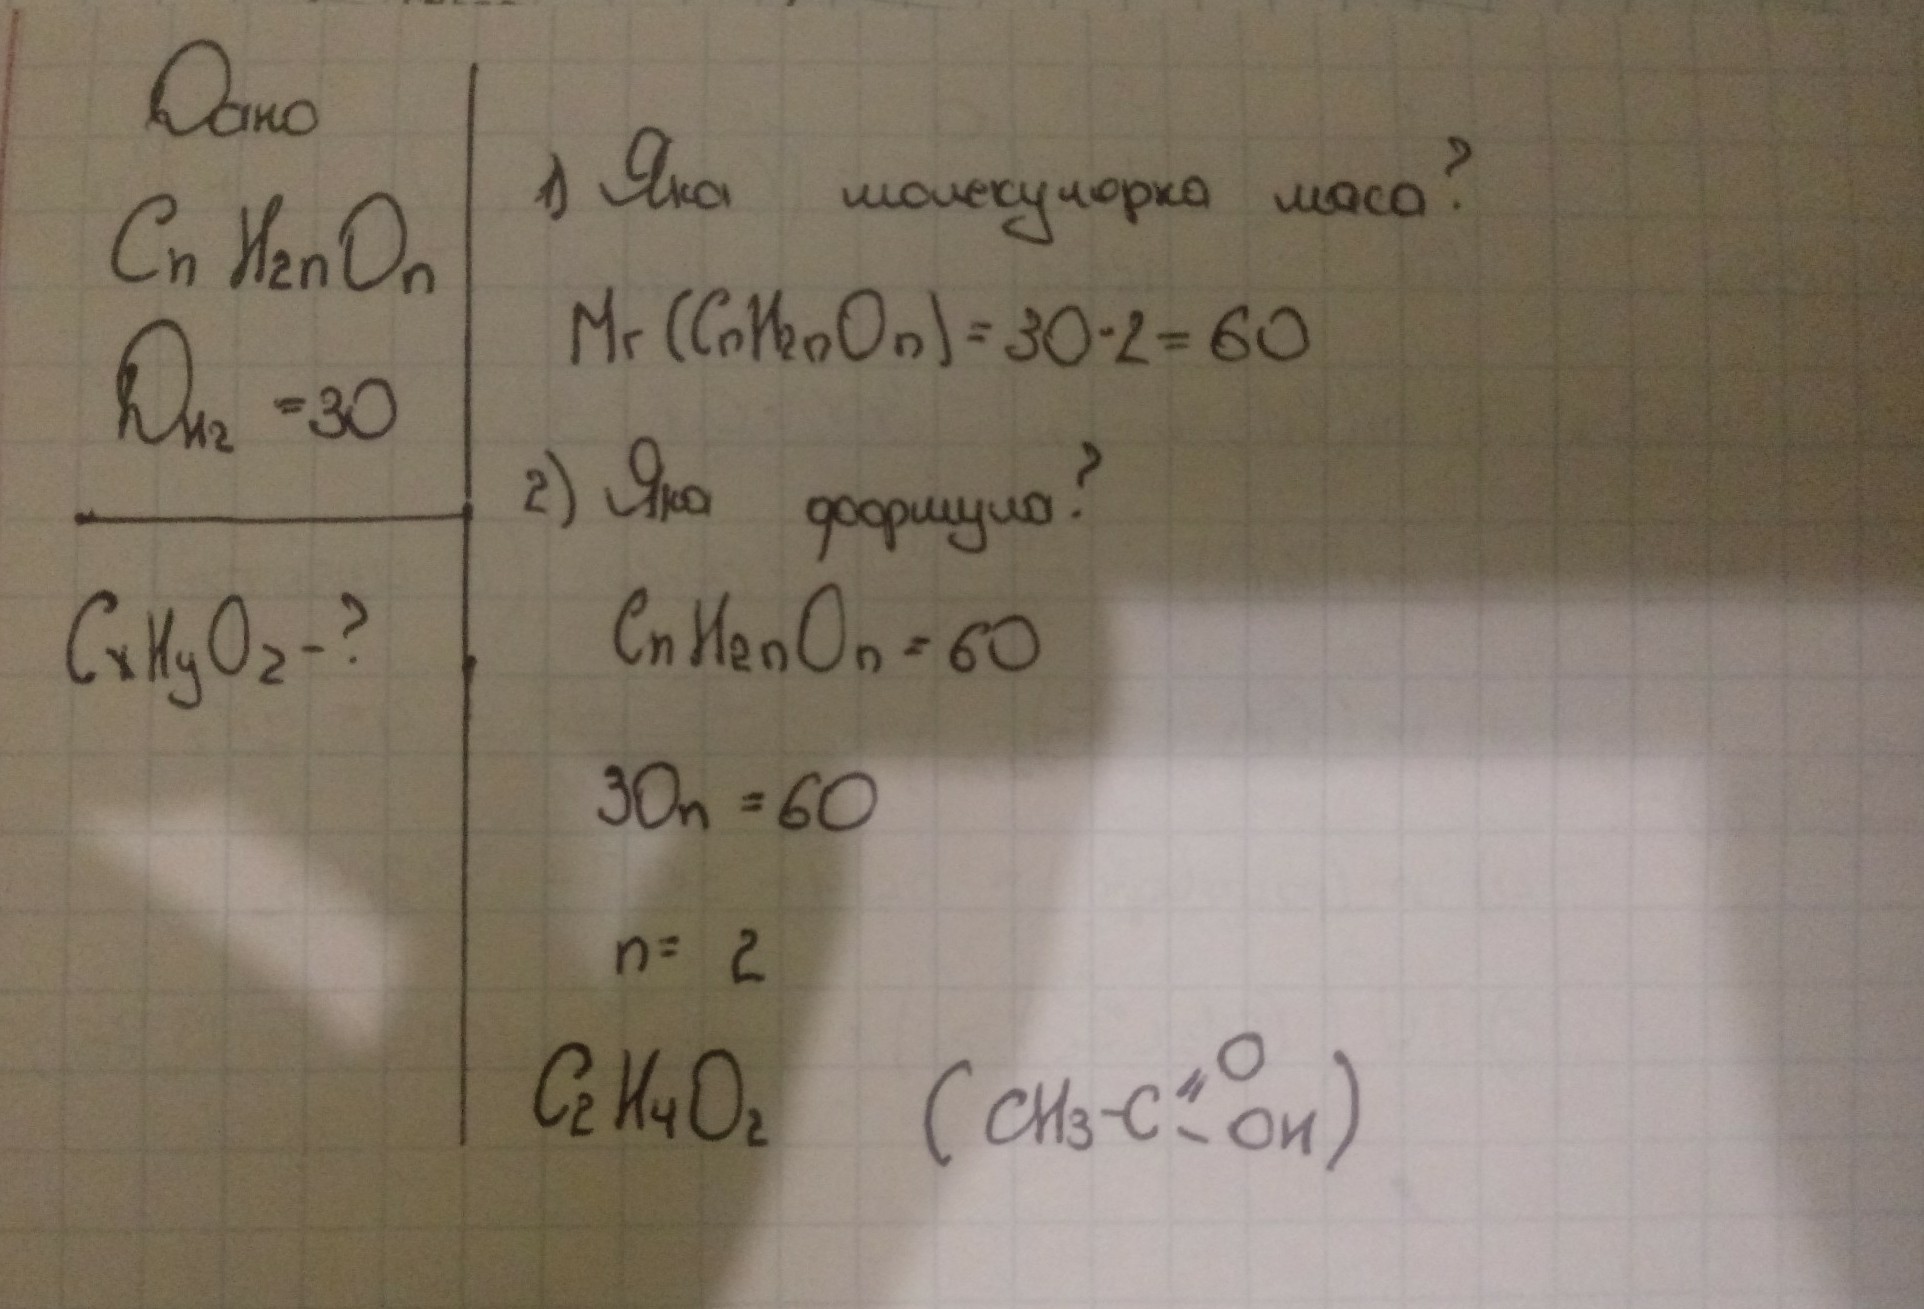 Дано
CnH2nOn
DH2 = 30
CxHyO2 - ?
1) Яка молекулорка маса?
Mr (CnH2nOn) = 30 · 2 = 60
2) Яка формула?
CnH2nOn = 60
30n = 60
n = 2
C2H4O2 (CH3-C=O-OH)